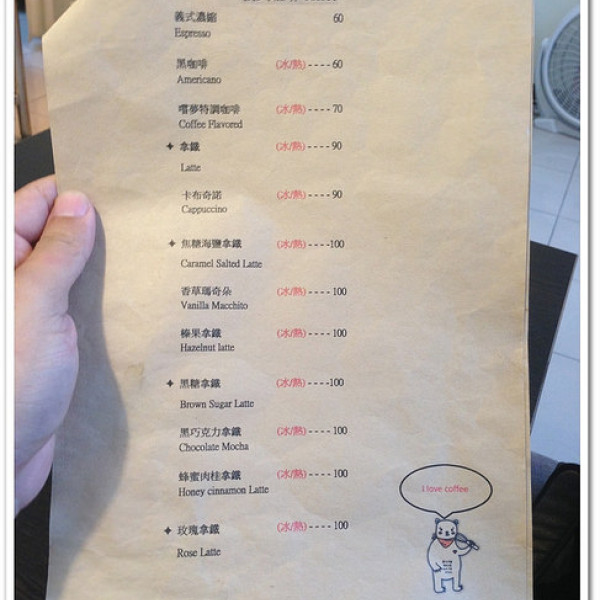 義式濃縮 60
Espresso
黑咖啡 (冰/熱) ---- 60
Americano
嚐夢特調咖啡 (冰/熱) ---- 70
Coffee Flavored
✦ 拿鐵 (冰/熱) ---- 90
Latte
卡布奇諾 (冰/熱) ---- 90
Cappuccino
✦ 焦糖海鹽拿鐵 (冰/熱) ----100
Caramel Salted Latte
香草瑪奇朵 (冰/熱) ---- 100
Vanilla Macchito
榛果拿鐵 (冰/熱) ---- 100
Hazelnut latte
✦ 黑糖拿鐵 (冰/熱) ----100
Brown Sugar Latte
黑巧克力拿鐵 (冰/熱) ---- 100
Chocolate Mocha
蜂蜜肉桂拿鐵 (冰/熱) ---- 100
Honey cinnamon Latte
✦ 玫瑰拿鐵 (冰/熱) ---- 100
Rose Latte
I love coffee